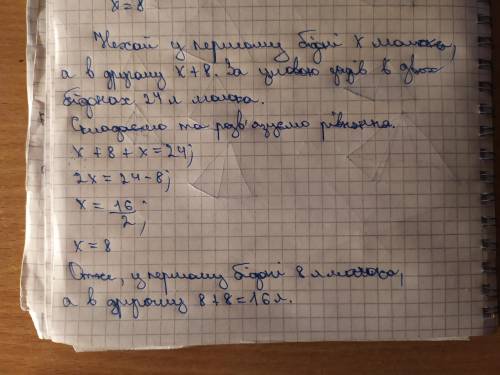 x=8
Нехай у першому бідні x молока,
а в другому x+8. За умовою задачі в двох
бідонах 24 л молока.
Складаємо та розв'язуємо рівняння.
x+8+x=24;
2x=24-8;
x=16/2;
x=8
Отже, у першому бідні 8 л молока,
а в другому 8+8=16 л.